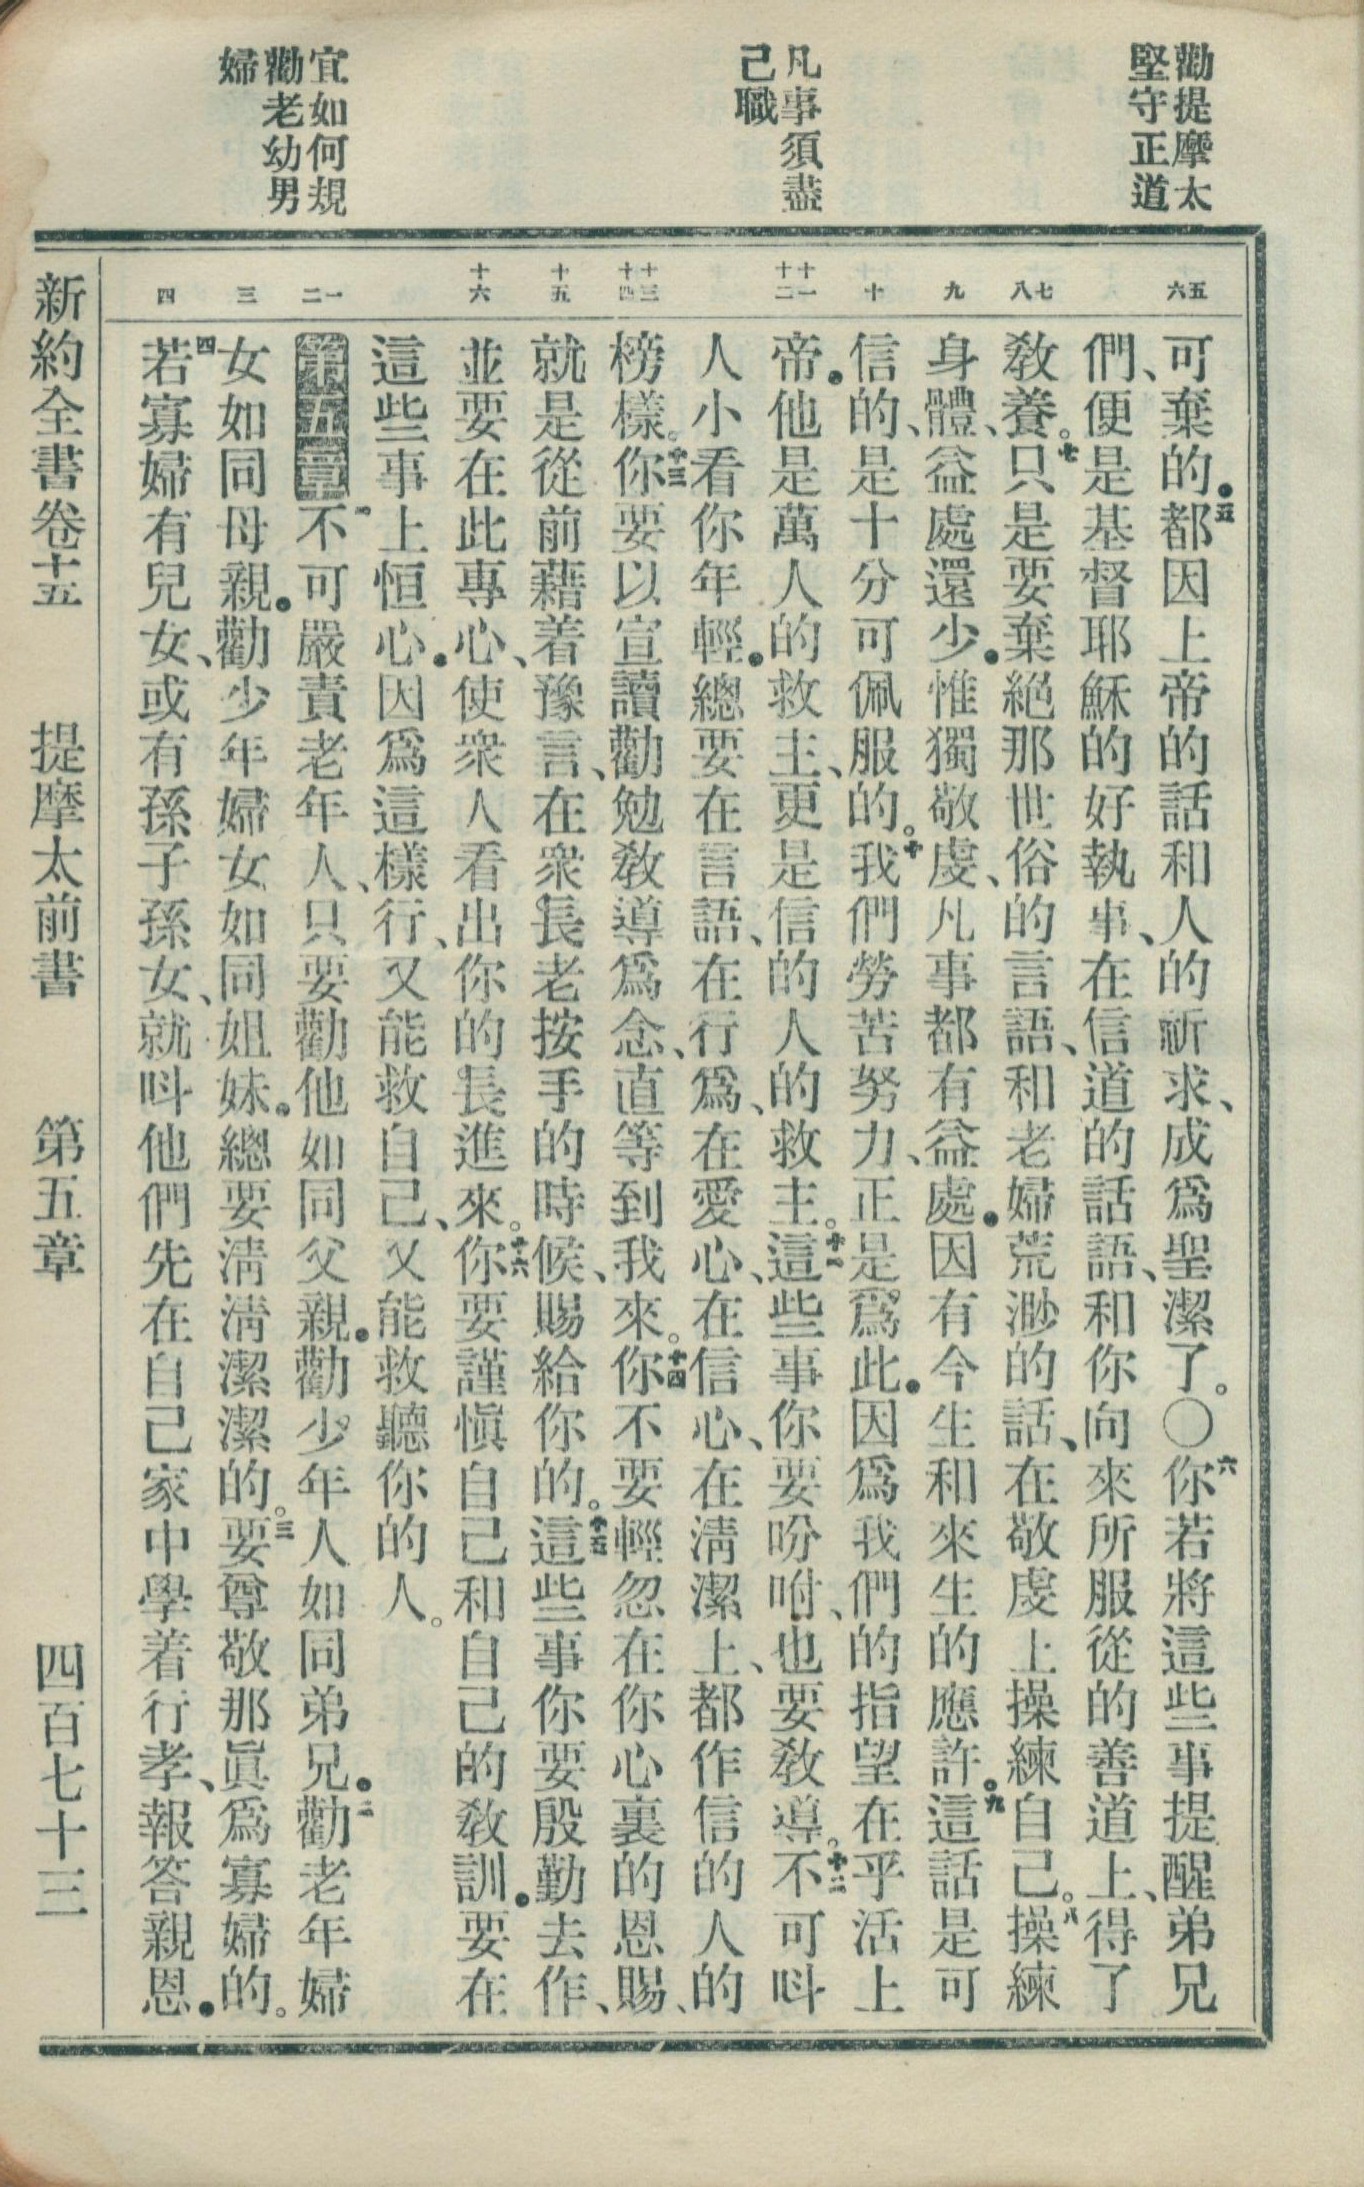 勸提摩太
堅守正道
凡事須盡
己職
宜如何規
勸老幼男
婦
五
六
七
八
九
十
十一
十二
十三
十四
十五
十六
一
二
三
四
可棄的.五都因上帝的話和人的祈求、成爲聖潔了。〇六你若將這些事提醒弟兄
們、便是基督耶穌的好執事、在信道的話語、和你向來所服從的善道上、得了
敎養。七只是要棄絕那世俗的言語、和老婦荒渺的話、在敬虔上操練自己。八操練
身體、益處還少.惟獨敬虔、凡事都有益處.因有今生和來生的應許。九這話是可
信的、是十分可佩服的。十我們勞苦努力、正是爲此.因爲我們的指望在乎活上
帝.他是萬人的救主、更是信的人的救主。十一這些事你要吩咐、也要敎導。十二不可呌
人小看你年輕.總要在言語、在行爲、在愛心、在信心、在淸潔上、都作信的人的
榜樣。十三你要以宣讀勸勉敎導爲念、直等到我來。十四你不要輕忽在你心裏的恩賜、
就是從前藉着豫言、在衆長老按手的時候、賜給你的。十五這些事你要殷勤去作、
並要在此專心、使衆人看出你的長進來。十六你要謹愼自己和自己的敎訓.要在
這些事上恒心.因爲這樣行、又能救自己、又能救聽你的人。
第五章 一不可嚴責老年人、只要勸他如同父親.勸少年人如同弟兄.二勸老年婦
女如同母親.勸少年婦女如同姐妹.總要淸淸潔潔的。三要尊敬那眞爲寡婦的。
四若寡婦有兒女、或有孫子孫女、就呌他們先在自己家中學着行孝、報答親恩.
新約全書卷十五 提摩太前書 第五章 四百七十三